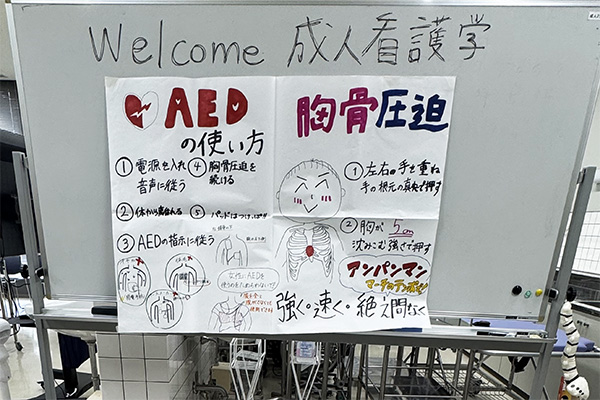 Welcome 成人看護学
AED
の使い方
① 電源を入れ
音声に従う
② 体から離れる
③ AEDの指示に従う
④ 胸骨圧迫を
続ける
女性にAEDを
胸骨圧迫
① 左右の手を重ね
手の根元の真央で押す
② 胸が 5cm
沈みこむ強さで押す
アンパンマン
強く。速く。絶え間なく